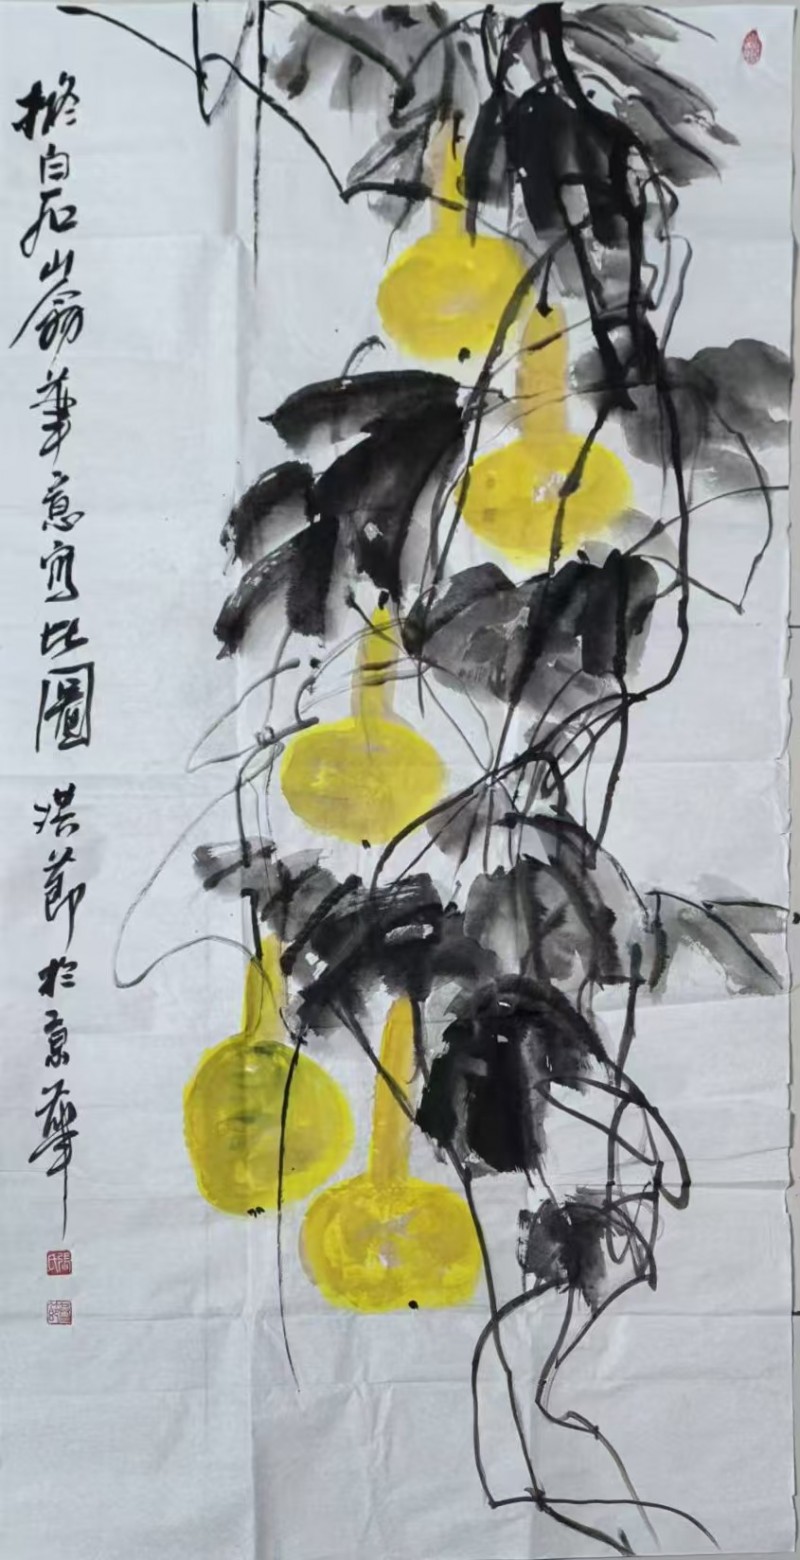 擬白石山翁筆意寫此圖 洪節於京華
張氏